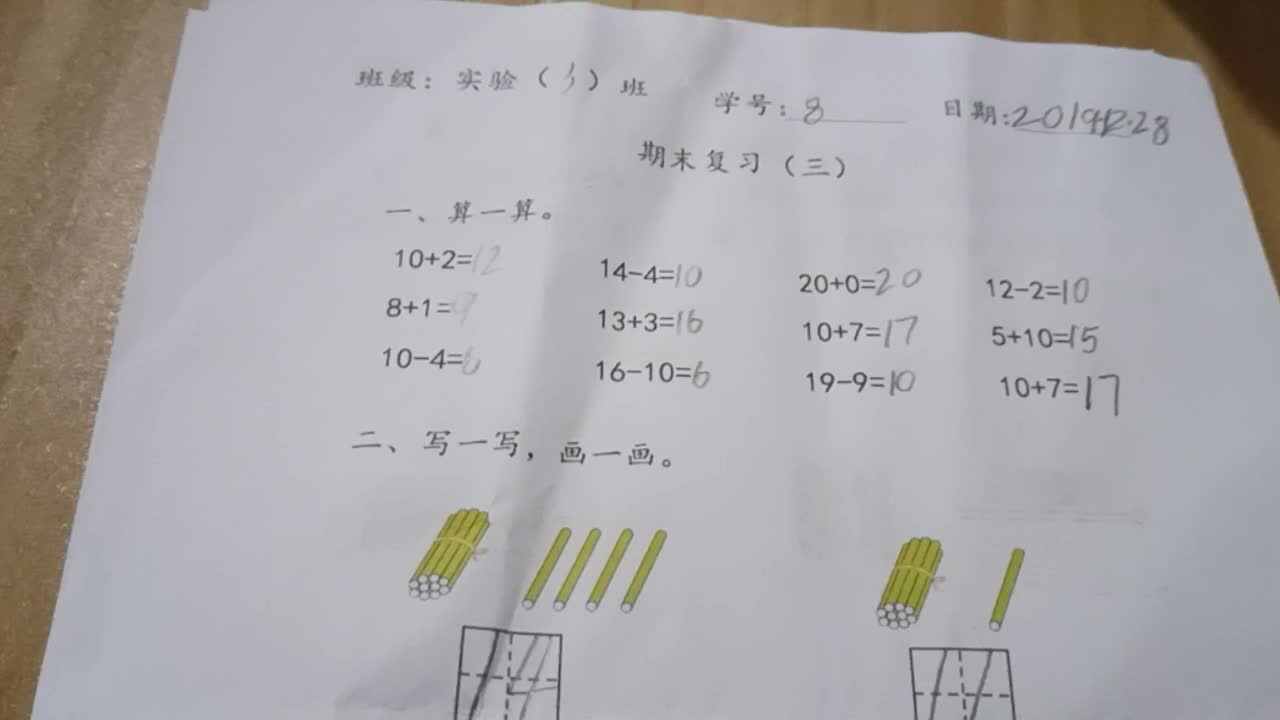 班级：实验（ ）班 学号：8 日期：2019.12.28
期末复习（三）
一、算一算。
10+2=12 14-4=10 20+0=20 12-2=10
8+1=9 13+3=16 10+7=17 5+10=15
10-4=6 16-10=6 19-9=10 10+7=17
二、写一写，画一画。